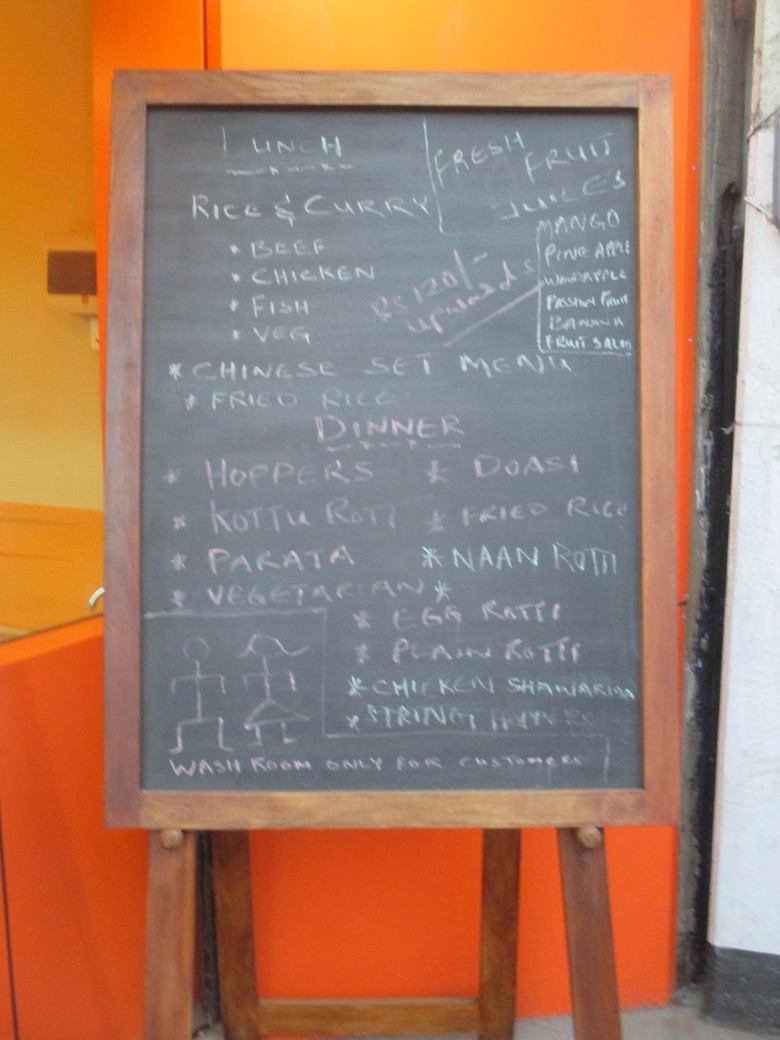 LUNCH
RICE & CURRY
* BEEF
* CHICKEN
* FISH
* VEG
FRESH FRUIT
JUICES
MANGO
PINE APPLE
WOODAPPLE
PASSION FRUIT
BANANA
FRUIT SALAD
RS 120/-
upwards
* CHINESE SET MENU
* FRIED RICE
DINNER
* HOPPERS * DOASI
* KOTTU ROTI * FRIED RICE
* PARATA * NAAN ROTTI
* VEGETARIAN *
* EGG ROTTI
* PLAIN ROTTI
* CHICKEN SHAWARMA
* STRING HOPPERS
WASH ROOM ONLY FOR CUSTOMERS